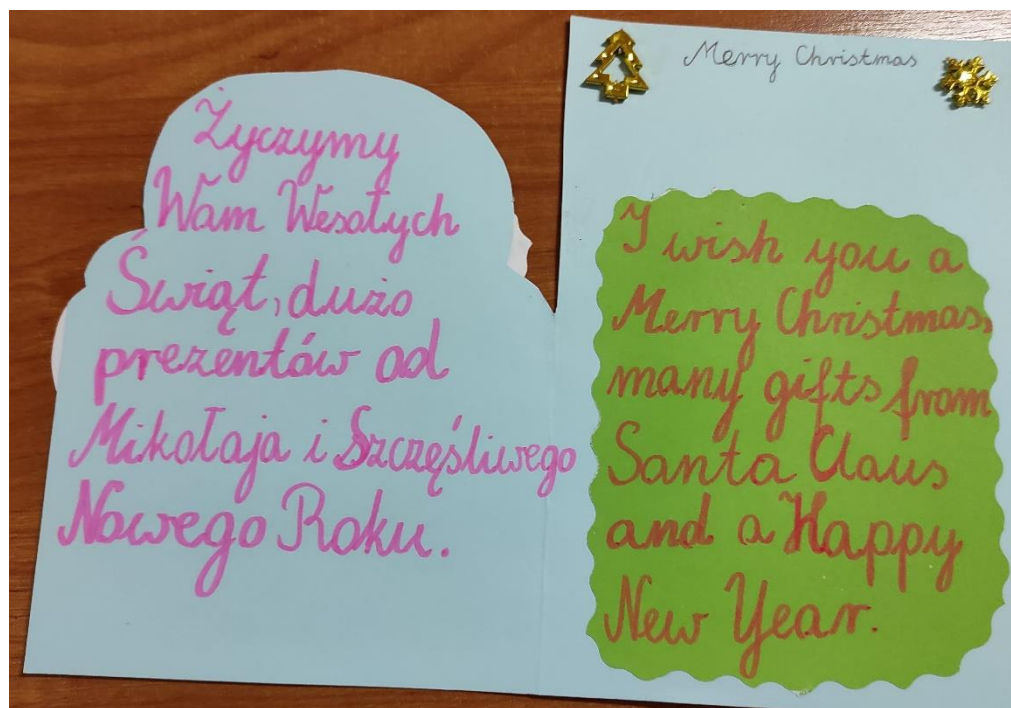 Życzymy
Wam Wesołych
Świąt, dużo
prezentów od
Mikołaja i Szczęśliwego
Nowego Roku.
Merry Christmas
I wish you a
Merry Christmas,
many gifts from
Santa Claus
and a Happy
New Year.